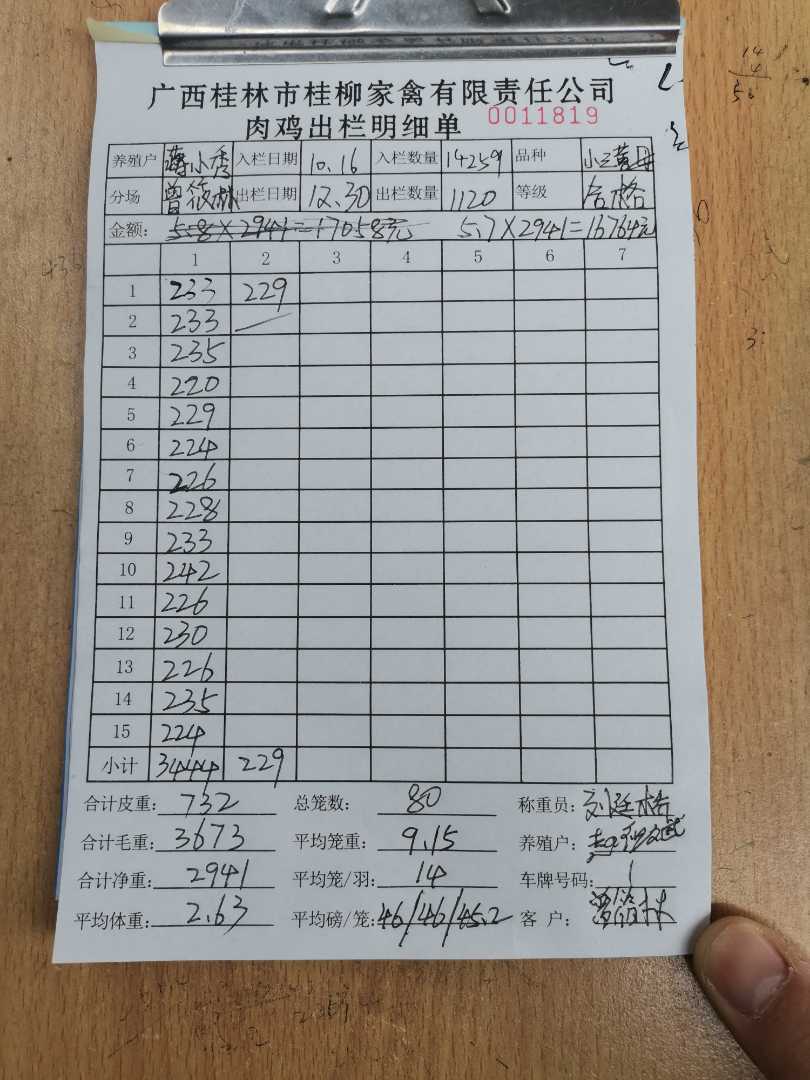 广西桂林市桂柳家禽有限责任公司
肉鸡出栏明细单 0011819
养殖户 蒋小秀 入栏日期 10.16 入栏数量 14259 品种 小三黄母
分场 曾筱林 出栏日期 12.30 出栏数量 1120 等级 合格
金额: 5.8×2941=17058元 5.7×2941=16764元
1 2 3 4 5 6 7
1 233 229
2 233
3 235
4 220
5 229
6 224
7 226
8 228
9 233
10 242
11 226
12 230
13 226
14 235
15 224
小计 3444 229
合计皮重: 732 总笼数: 80 称重员: 刘廷格
合计毛重: 3673 平均笼重: 9.15 养殖户:
合计净重: 2941 平均笼/羽: 14 车牌号码: 1
平均体重: 2.63 平均磅/笼: 46/46/45.2 客户: 曾筱林
14
4
56